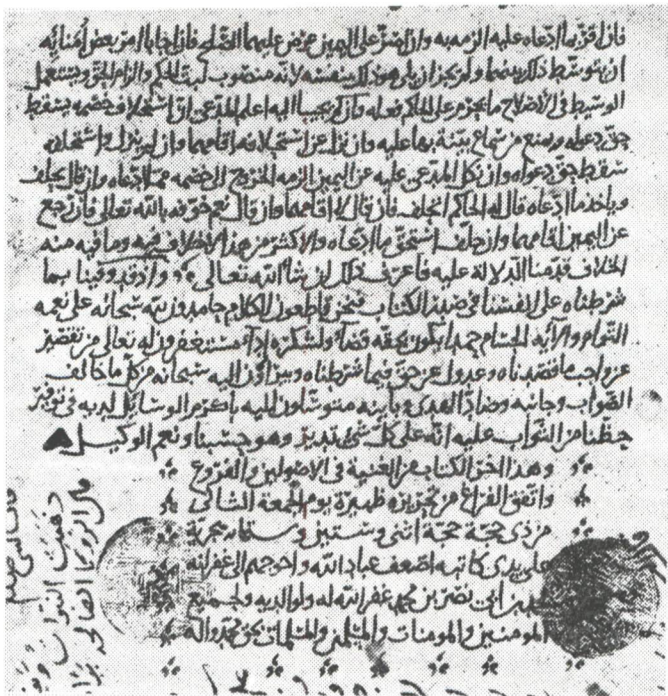 فان اقر بما ادعاه عليه الزمه به وان اصر على اليمين عرض عليهما الصلح فان اجابا امر بعض امنائه
ان يتوسط ذلك بينهما ولم يجز ان يلي هو ذلك بنفسه لانه منصوب لبت الحكم والزام الحق ويستعمل
الوسيط في الاصلاح ما يحرم على الحاكم فعله وان لم يجيبا اليه اعلم المدعي ان استحلاف خصمه يسقط
حق دعواه ويمنع من سماع بينة بها عليه وان نزل عن استحلافه اقامهما وان لم ينزل واستحلفه
سقط حق دعواه وان نكل المدعى عليه عن اليمين الزمه الخروج الى خصمه مما ادعاه وان قال يحلف
وياخذ ما ادعاه قال له الحاكم اتحلف فان قال لا اقامهما وان قال نعم خوفه بالله تعالى فان رجع
عن اليمين اقامهما وان حلف استحق ما ادعاه والاكثر من هذا لا خلاف فيه وما فيه منه
الخلاف قدمنا الدلالة عليه فاعرف ذلك ان شا الله تعالى واذ قد وفينا بما
شرطناه على انفسنا في صدر الكتاب فنحن قاطعون للكلام حامدون لله سبحانه على نعمه
التوام والآئه الجسام حمدا يكون لحقه قضآء ولشكره ادآء مستغفرون له تعالى من تقصير
عن واجب ما قصدناه وعدول عن حق فيما شرطناه ومبرأون اليه سبحانه من كل ما خالف
الصواب وجانبه وضاد الهدى وباينه متوسلون اليه باكرم الوسائل لديه في توفير
حظنا من الثواب عليه انه على كل شي قدير وهو حسبنا ونعم الوكيل
وهذا اخر الكتاب من الغنية في الاصولين والفروع
واتفق الفراغ من تحريره ظهيرة يوم الجمعة الثاني
من ذي حجة حجة اثني وستين وستمايه هجرية
على يدي كاتبه اضعف عباد الله واحوجهم الى غفرانه
بن ابي نصر بن محمد غفر الله له ولوالديه ولجميع
المومنين والمومنات والمسلمين والمسلمات بحق محمد وآله